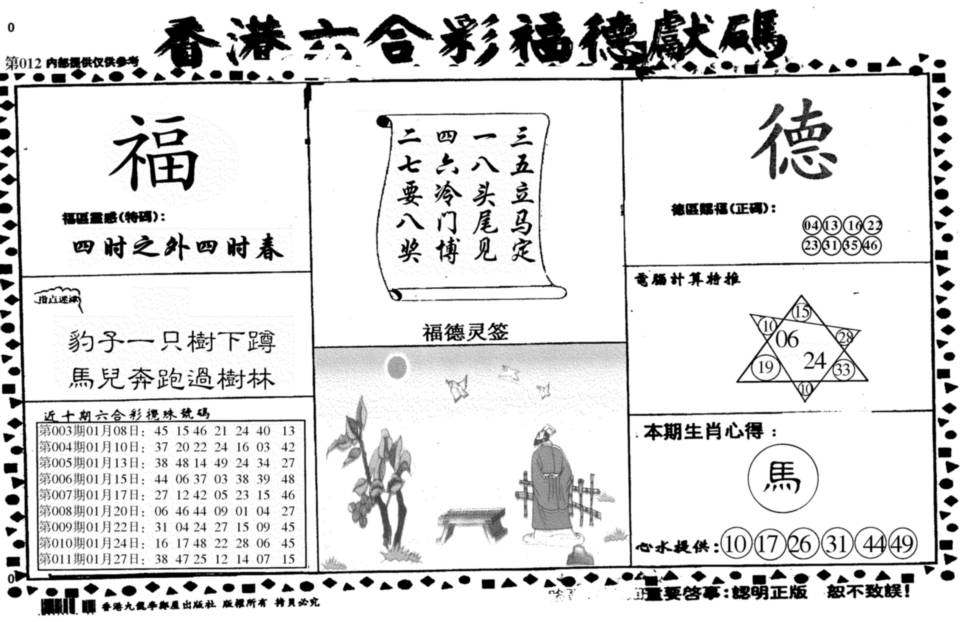 0
香港六合彩福德獻碼
第012 内部提供仅供参考
福
福區靈感(特碼):
四时之外四时春
指点迷津
豹子一只樹下蹲
馬兒奔跑過樹林
近十期六合彩攪珠號碼
第003期01月08日: 45 15 46 21 24 40 13
第004期01月10日: 37 20 22 24 16 03 42
第005期01月13日: 38 48 14 49 24 34 27
第006期01月15日: 44 06 37 03 38 39 48
第007期01月17日: 27 12 42 05 23 15 46
第008期01月20日: 06 46 44 09 01 04 27
第009期01月22日: 31 04 24 27 15 09 45
第010期01月24日: 16 17 48 22 28 06 45
第011期01月27日: 38 47 25 12 14 07 15
三五立马定
一八头尾见
四六冷门博
二七要八奖
福德灵签
德
德區賜福(正碼):
04 13 16 22
23 31 35 46
電腦計算特推
15
10
28
06
24
19
33
10
本期生肖心得:
馬
心水提供: 10 17 26 31 44 49
0
香港九龍李鄭屋出版社 版權所有 拷貝必究
重要啓事:認明正版 恕不致誤!